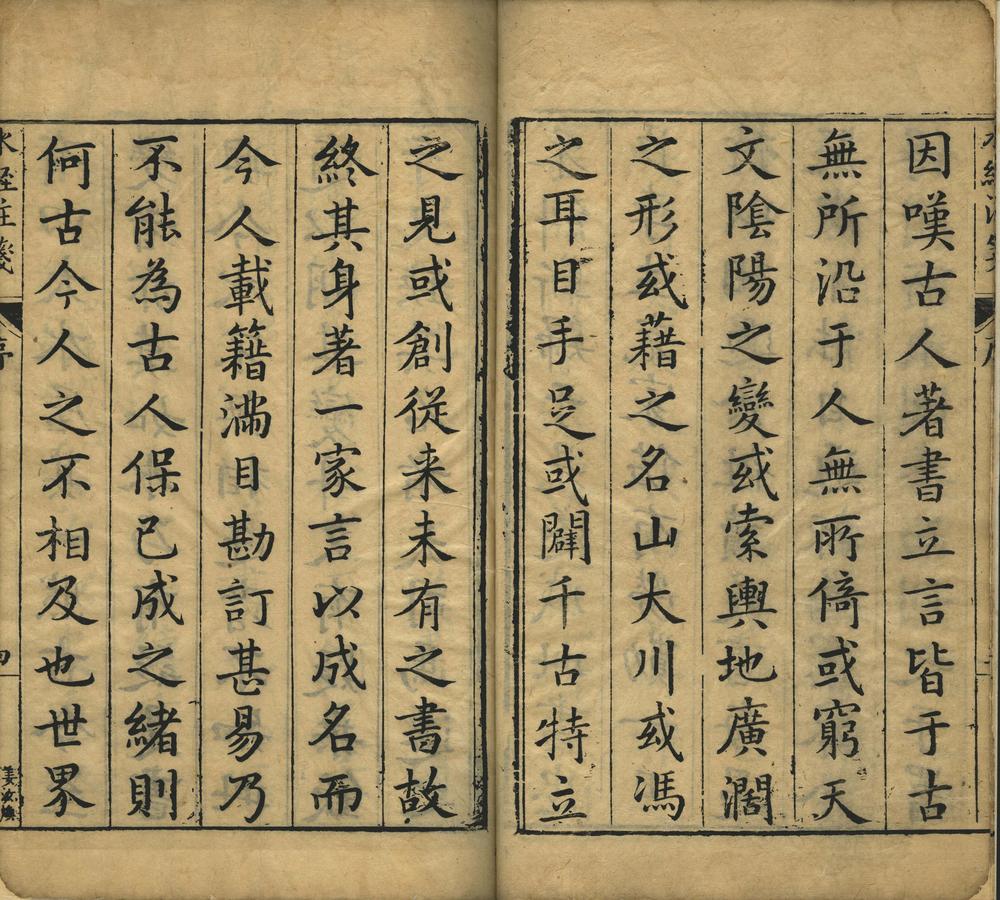 因嘆古人著書立言皆于古
無所沿于人無所倚或窮天
文陰陽之變或索輿地廣濶
之形或藉之名山大川或馮
之耳目手足或闢千古特立
之見或創從来未有之書故
終其身著一家言以成名而
今人載籍滿目勘訂甚易乃
不能為古人保已成之緒則
何古今人之不相及也世界
水經註箋
序
四